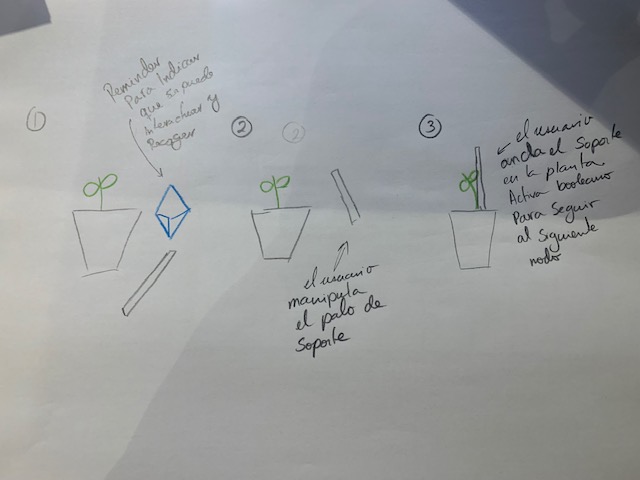 ①
Reminder
Para Indicar
que se puede
interactuar y
Recoger
②
②
el usuario
manipula
el palo de
Soporte
③
el usuario
ancla el Soporte
en la planta.
Activa booleano
Para Seguir
al Siguiente
nodo